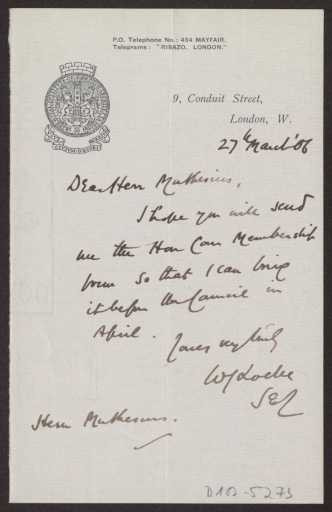 P.O. Telephone No.: 434 MAYFAIR.
Telegrams: "RIBAZO, LONDON."
9, Conduit Street,
London, W.
27th March '06
Dear Herr Muthesius,
I hope you will send
me the Hon Corr Membership
form so that I can bring
it before the Council in
April.
Yours very truly
WJ Locke
Sec
Herr Muthesius.
D102-5273